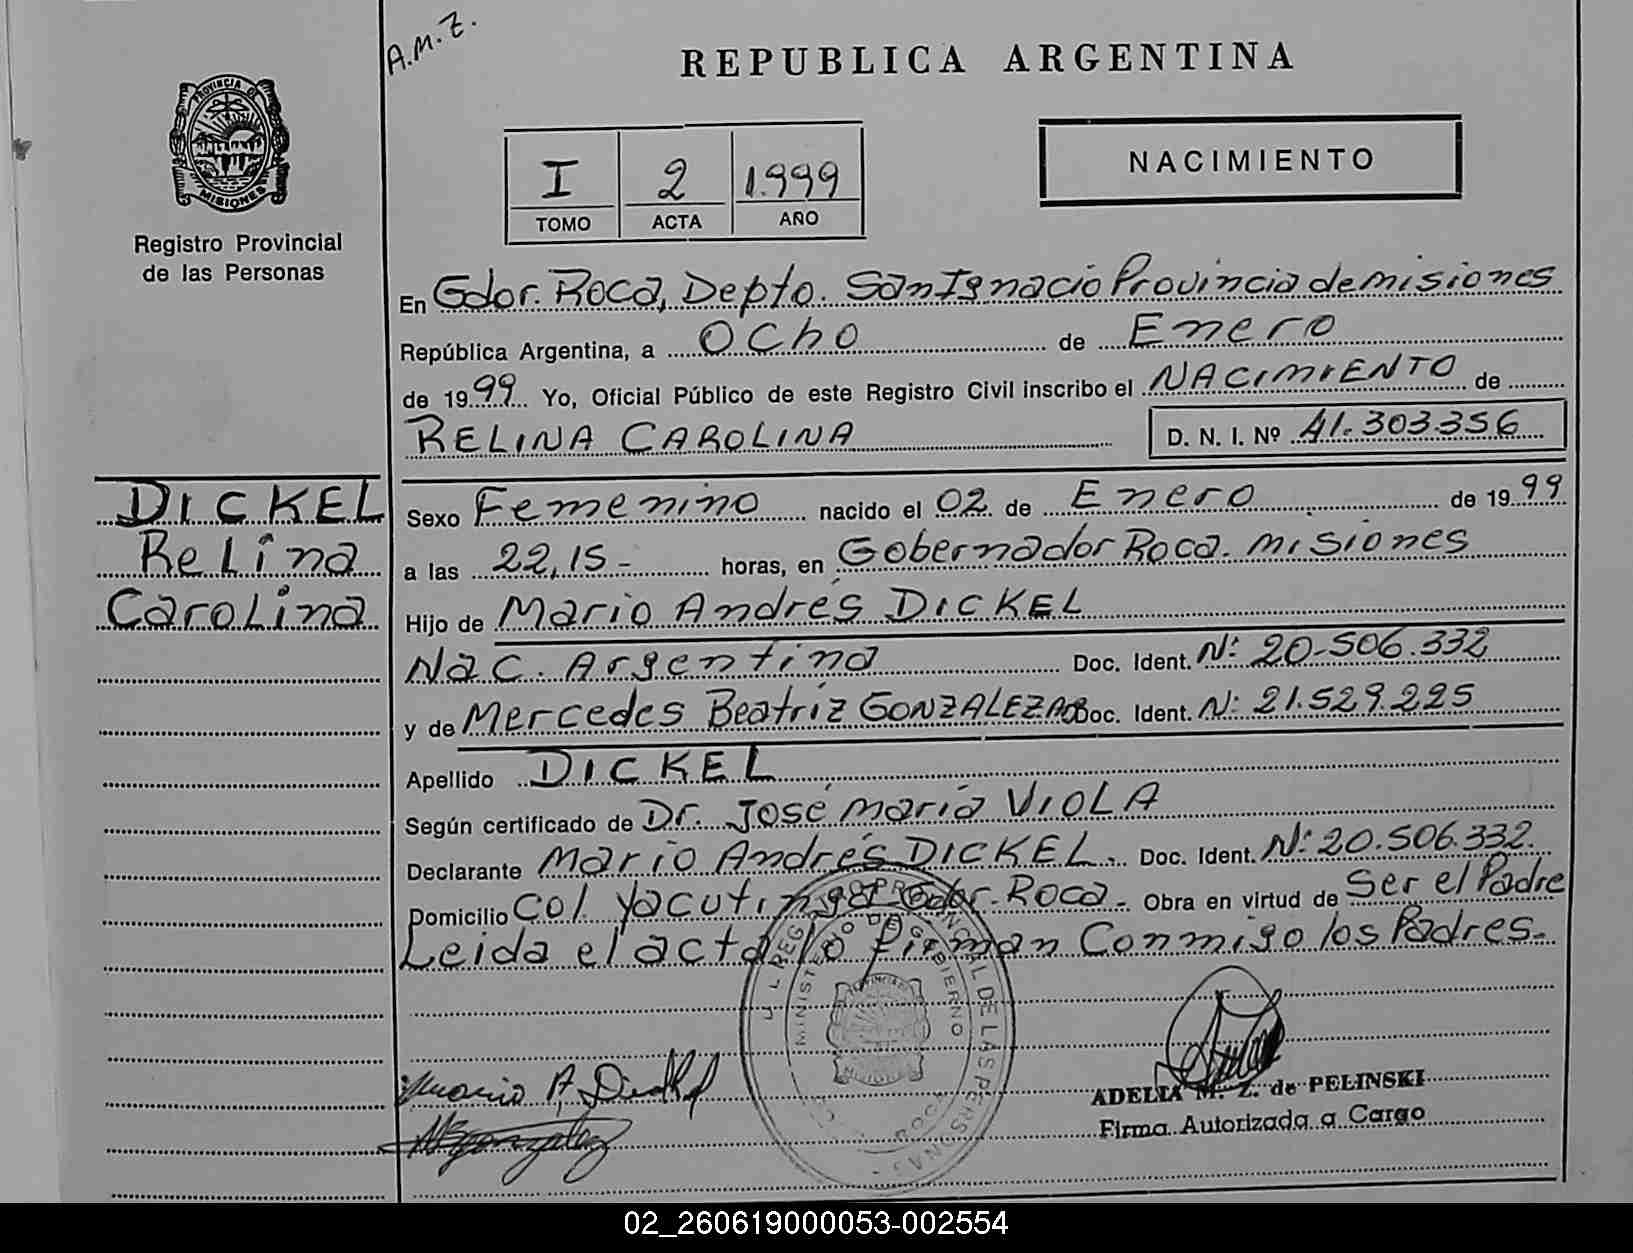 A.M.Z.
REPUBLICA ARGENTINA
PROVINCIA DE
MISIONES
Registro Provincial
de las Personas
I 2 1.999
TOMO ACTA AÑO
NACIMIENTO
En Gdor. Roca, Depto. San Ignacio Provincia de misiones
República Argentina, a Ocho de Enero
de 1999 Yo, Oficial Público de este Registro Civil inscribo el NACIMIENTO de
RELINA CAROLINA D. N. I. Nº 41.303.356
DICKEL
Relina
Carolina
Sexo Femenino nacido el 02 de Enero de 1999
a las 22,15- horas, en Gobernador Roca. misiones
Hijo de Mario Andrés DICKEL
Nac. Argentina Doc. Ident. Nº 20-506.332
y de Mercedes Beatriz GONZALEZ Doc. Ident. Nº 21.529.225
Apellido DICKEL
Según certificado de Dr. José maría VIOLA
Declarante Mario Andrés DICKEL. Doc. Ident. Nº 20.506.332.
Domicilio Col. Yacutinga Gdor. Roca- Obra en virtud de Ser el Padre
Leida el acta lo firman Conmigo los Padres-
REGISTRO PROVINCIAL DE LAS PERSONAS
MINISTERIO DE GOBIERNO
ROCA
Mario A. Dickel
MBGonzalez
ADELIA M. Z. de PELINSKI
Firma Autorizada a Cargo
02_260619000053-002554